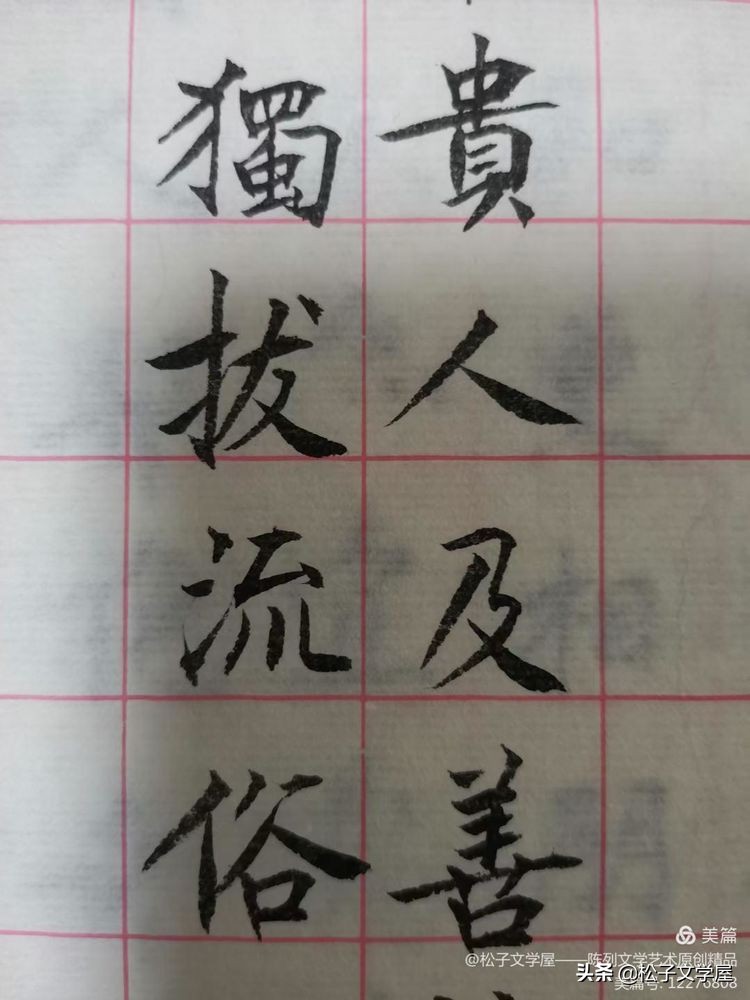 貴人及善
獨拔流俗
美篇
@松子文学屋——陈列文学艺术原创精品
头条 @松子文学屋
美篇号: 12276808